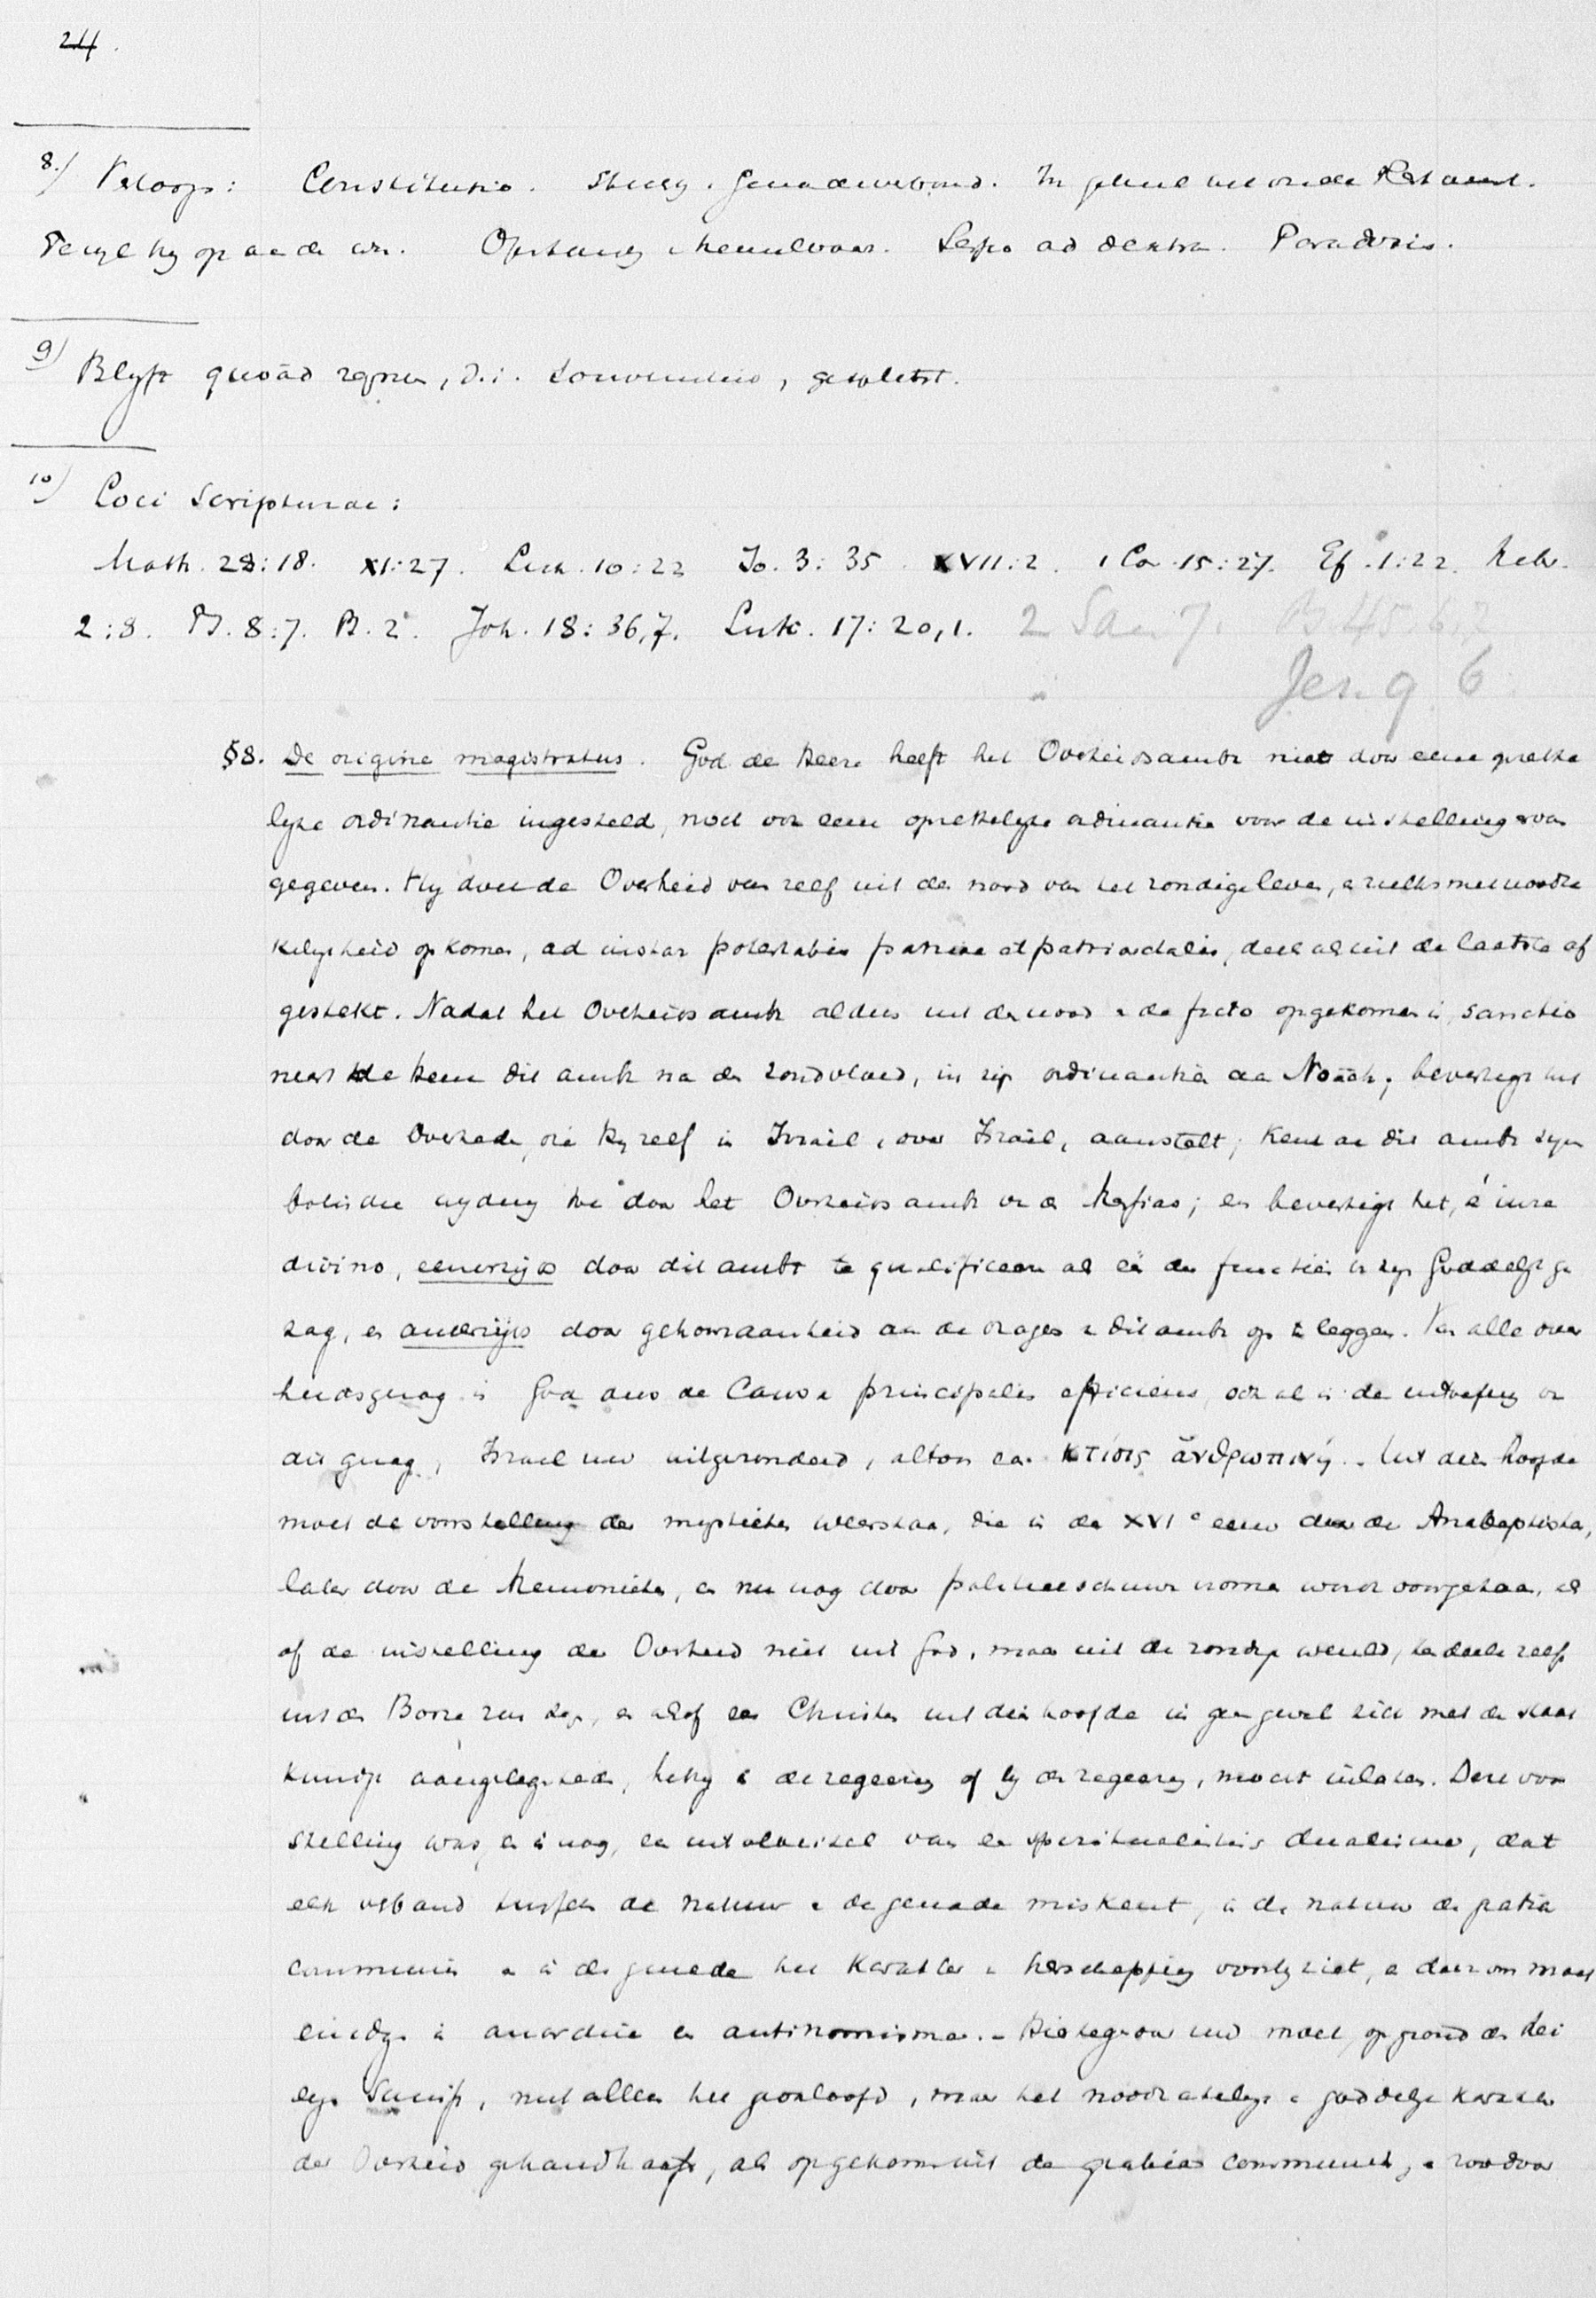 24.
8.) Verloop: Constitutio. Genadeverbond. In
Terwijl hij op aarde was. Opstanding & hemelvaart. Sessio ad dextra. Parousie.
9) Blyft quoad regnum, d.i. souvereiniteit,
10) Loci Scripturae:
Math. 28:18. XI:27. Luc. 10:22 Jo. 3:35. XVII:2. 1 Co. 15:27. Ef. 1:22. Hebr.
2:8. Ps. 8:7. Ps. 2. Joh. 18:36,7. Luk. 17:20,1. 2 Sam 7. Ps 45:6,7
Jes. 9 6
§8. De origine magistratus. God de Heere heeft het Overheidsambt niet door eene oprette
lyke ordinantie ingesteld, noch ook eene voor de instelling ervan
gegeven. Hy doet de Overheid van zelf uit den nood van het zondige leven, en zulks met noodza
kelykheid opkomen, ad instar potestatis patriae et patriarchalis, deels als uit de laatste af
gestekt. Nadat het Overheidsambt aldus uit den nood en de facto opgekomen is, sanctio
neert de Heere dit ambt na den zondvloed, in zijn ordinantie aan Noach; bevestigt het
door de Overheden, die Hy zelf in Israel, over Israel, aanstelt; kent aan dit ambt sym
bolische wyding toe door het Overheidsambt van den Messias; en bevestigt het, è iure
divino, eenerzijds door dit ambt te qualificeren als één der functiën van zijn Goddelijk ge
zag, en anderzijds door gehoorzaamheid aan de dragers van dit ambt op te leggen. Van alle over
heidsgezag is God dus de Causa principalis efficiens, ook al is de van
dit gezag, Israel nu uitgezonderd, altoos een κτίσις ἀνθρωπινή. Uit dien hoofde
moet de voorstelling der mystieken weerstaan, die in de XVIe eeuw door de Anabaptisten,
later door de Mennonieten, en nu nog door vromen wordt voorgestaan, als
of de instelling der Overheid niet uit God, maar uit de zondige wereld, ten deele zelfs
uit den Booze zou zijn, en alsof een Christen uit dien hoofde in geen geval zich met de staat
kundige aangelegenheden, hetzij in de regeering of bij de regeering, mocht inlaten. Deze voor
stelling was, en is nog, een uitvloeisel van een spiritualistisch dualisme, dat
elk verband tusschen de natuur en de genade miskent, in de natuur de gratia
communis en in de genade het karakter van herschepping voorbyziet, en daarom moet
eindigen in anarchie en antinomisme. - Hiertegenover nu moet, op grond der Hei
lige Schrift, niet alleen het geoorloofd, maar het noodzakelijke en goddelijk karakter
der Overheid gehandhaafd, als opgekomen uit de gratia communis, en